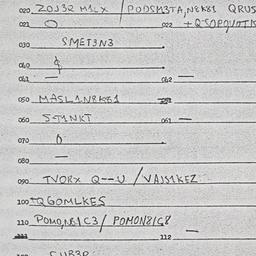 020. ZOJ32 M1LX / PODSM3TA,N8K81 QRUS
021 O 022 +QSOPQUTTIS
030 SMET3N3
040
041 — 062 —
050 MASL1N8K81
060 S-T1NKT 061 —
070
080 —
090 TVORX Q--U / VAJS1KEZ
100 +Q6OMLKES
110 POMO,N81C3/ POMON81G8
112 —